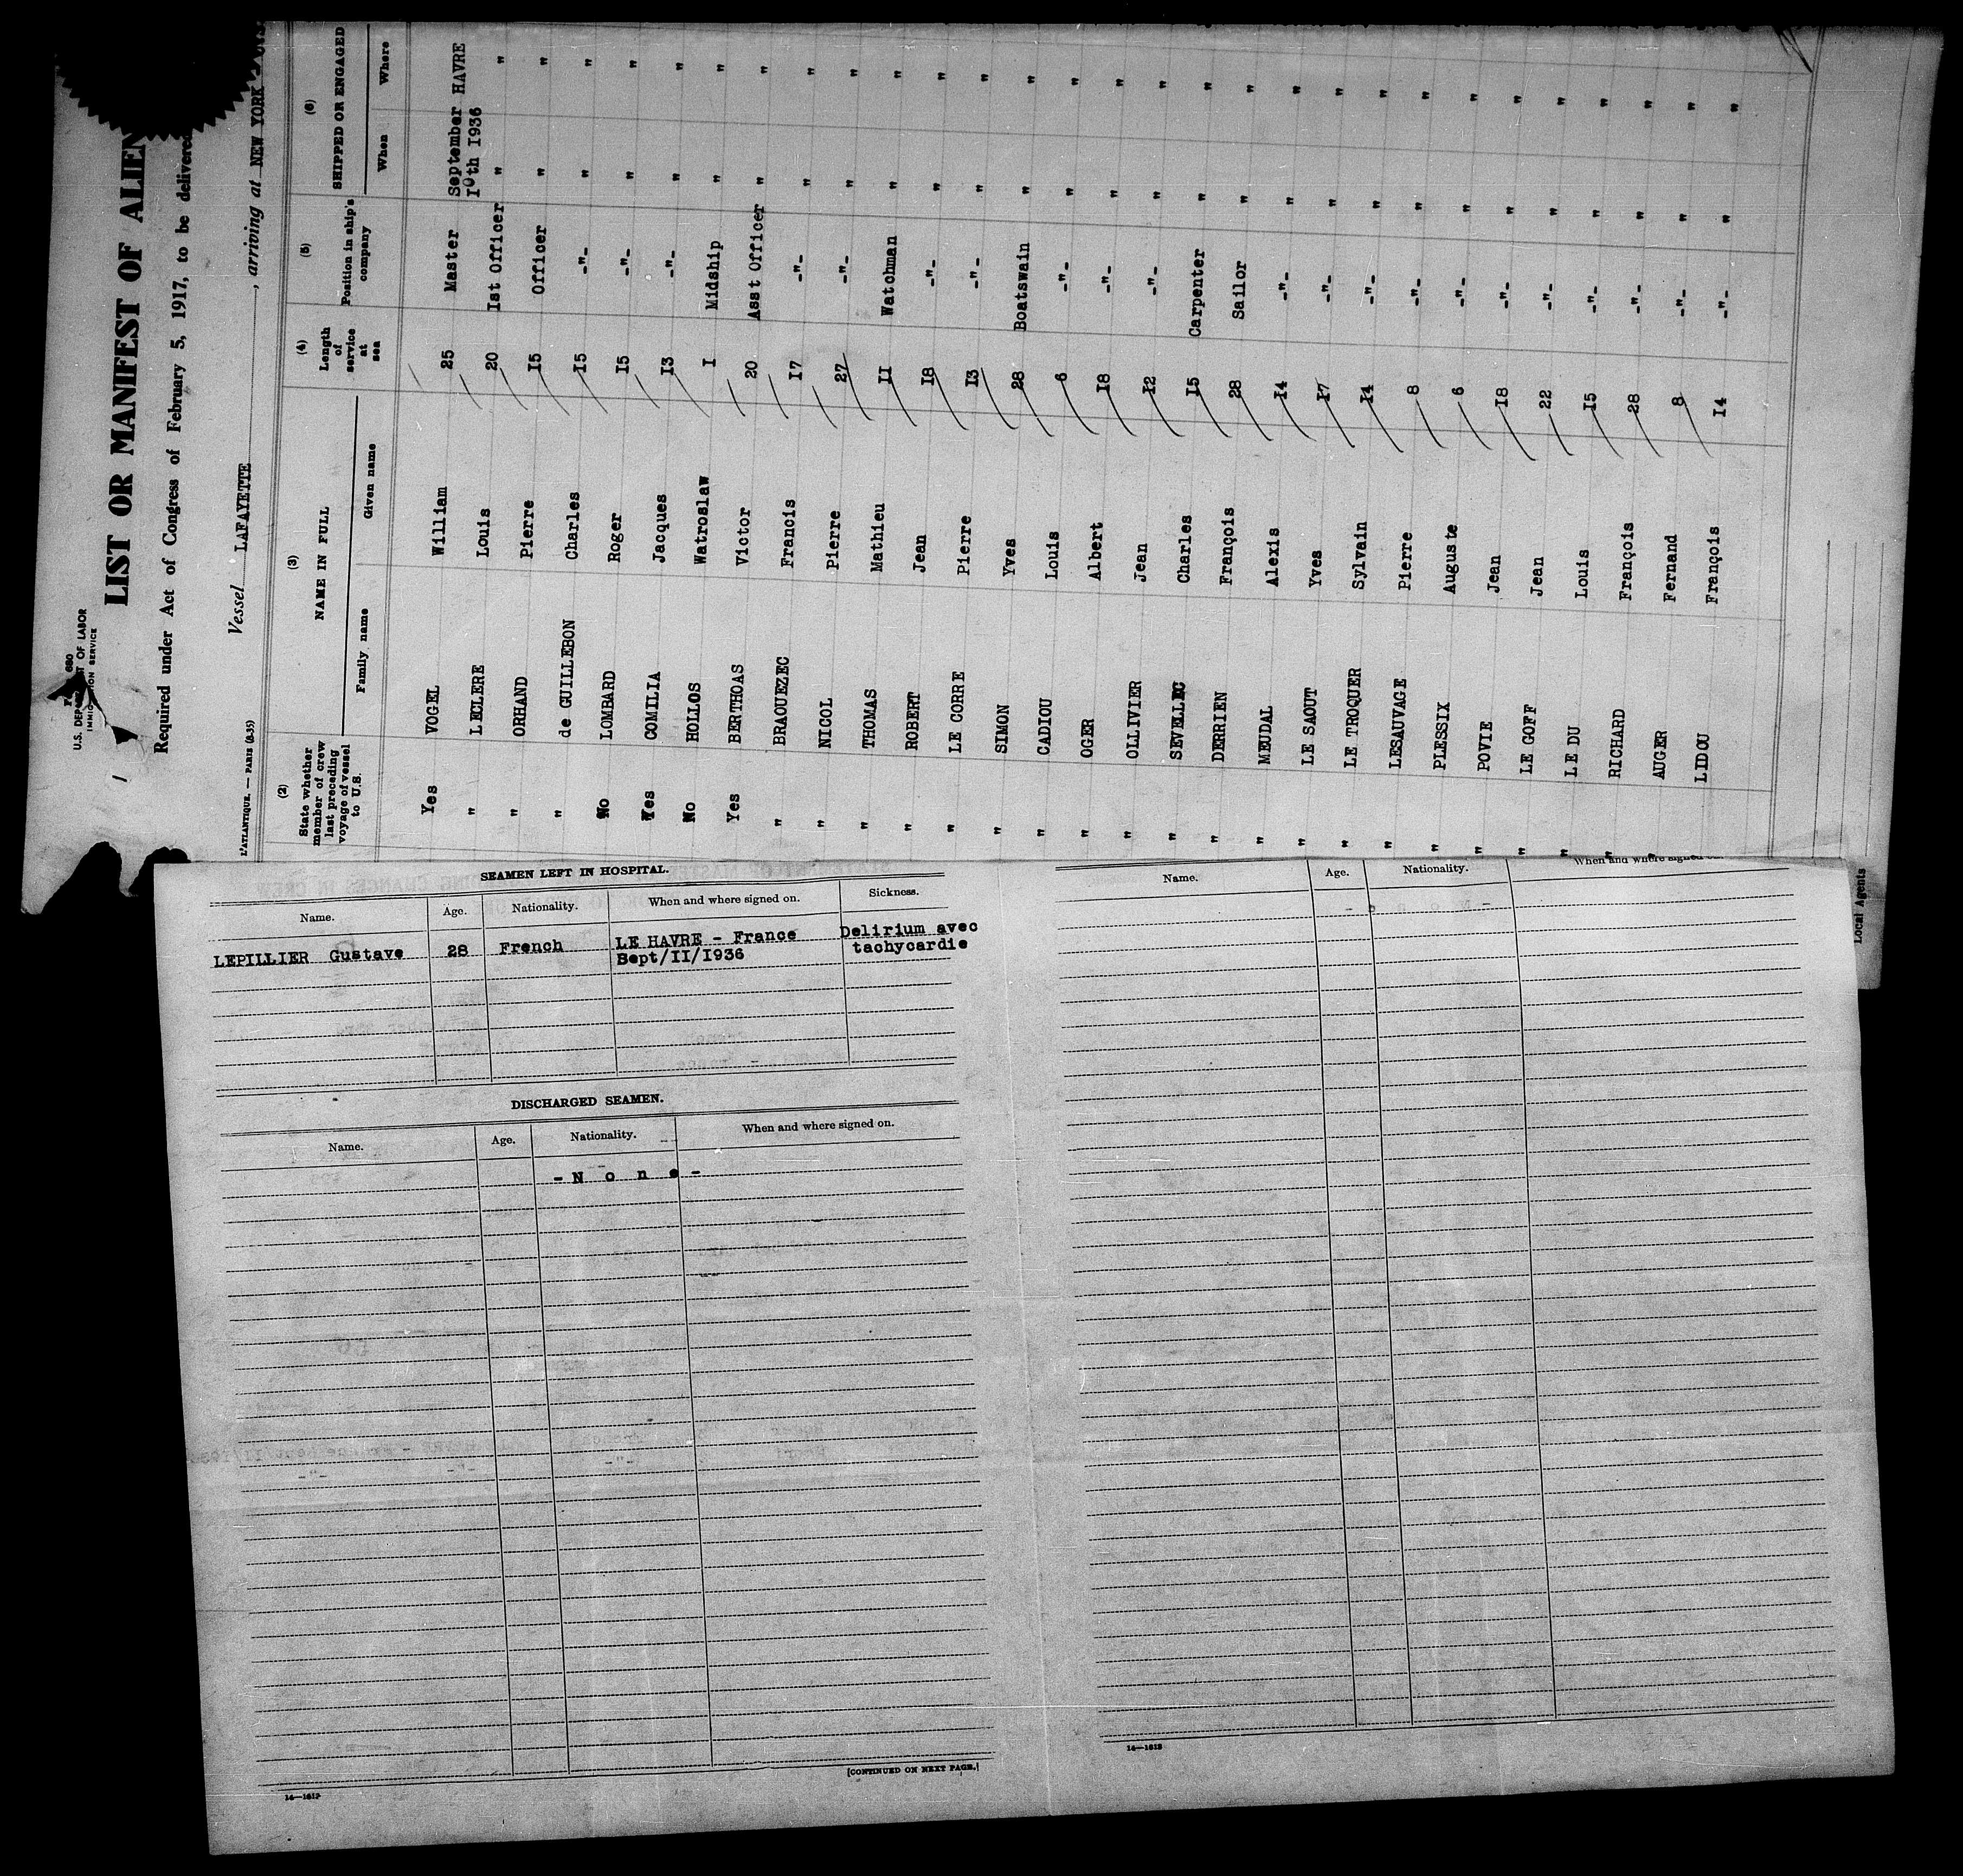 U.S. DEPARTMENT OF LABOR
IMMIGRATION SERVICE
LIST OR MANIFEST OF ALIEN
Required under Act of Congress of February 5, 1917, to be delivered
Vessel LAFAYETTE, arriving at NEW YORK
L'ATLANTIQUE. — PARIS (6.35)
(2) (3) (4) (5) (6)
State whether member of crew last preceding voyage of vessel to U.S. NAME IN FULL Length of service at sea Position in ship's company SHIPPED OR ENGAGED
Family name Given name When Where
Yes VOGEL William 25 Master September 10th 1936 HAVRE
" LECLERE Louis 20 Ist Officer " "
" ORHAND Pierre I5 Officer " "
" de GUILLEBON Charles I5 -"- " "
No LOMBARD Roger I5 -"- " "
Yes COMILIA Jacques I3 -"- " "
No HOLLOS Watroslaw I Midship " "
Yes BERTHOAS Victor 20 Asst Officer " "
" BRAOUEZEC Francis I7 -"- " "
" NICOL Pierre 27 -"- " "
" THOMAS Mathieu II Watchman " "
" ROBERT Jean I8 -"- " "
" LE CORRE Pierre I3 -"- " "
" SIMON Yves 28 Boatswain " "
" CADIOU Louis 6 -"- " "
" OGER Albert I8 -"- " "
" OLLIVIER Jean I2 -"- " "
" SEVELLEC Charles I5 Carpenter " "
" DERRIEN François 28 Sailor " "
" MEUDAL Alexis I4 -"- " "
" LE SAOUT Yves I7 -"- " "
" LE TROQUER Sylvain I4 -"- " "
" LESAUVAGE Pierre 8 -"- " "
" PLESSIX Auguste 6 -"- " "
" POVIE Jean I8 -"- " "
" LE GOFF Jean 22 -"- " "
" LE DU Louis I5 -"- " "
" RICHARD François 28 -"- " "
" AUGER Fernand 8 -"- " "
LIDOU François I4 -"- " "
Local Agents
SEAMEN LEFT IN HOSPITAL.
Name. Age. Nationality. When and where signed on. Sickness.
LEPILLIER Gustave 28 French LE HAVRE - France Delirium avec
Sept/II/I936 tachycardie
DISCHARGED SEAMEN.
Name. Age. Nationality. When and where signed on.
- N o n e -
[CONTINUED ON NEXT PAGE.]
Name. Age. Nationality. When and where signed on.
16—1613